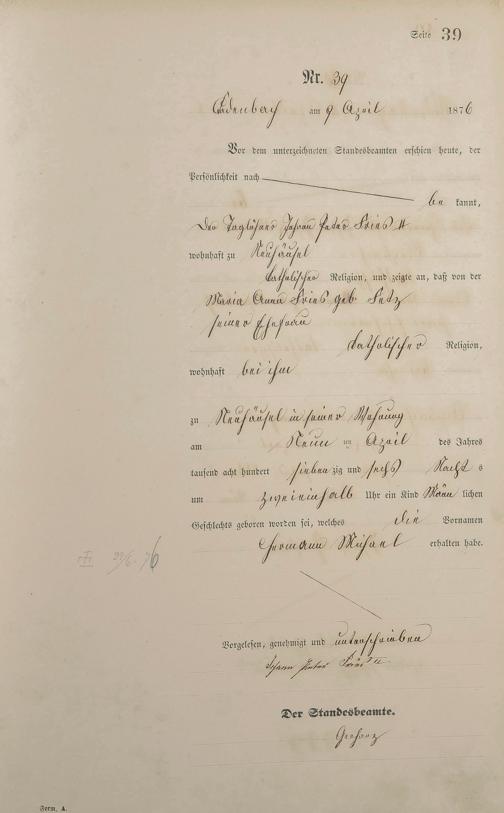 Seite 39
Nr. 39
Cadenbach am 9 April 1876
Vor dem unterzeichneten Standesbeamten erschien heute, der
Persönlichkeit nach
be kannt,
Der Taglöhner Johann Peter Fries II
wohnhaft zu Neuhäusel
katholischer Religion, und zeigte an, daß von der
Maria Anna Fries geb
seiner Ehefrau
katholischer Religion,
wohnhaft bei ihm
zu Neuhäusel in seiner Wohnung
am Neun ten April des Jahres
tausend acht hundert sieben zig und sechs Nacht s
um zweieinhalb Uhr ein Kind Männ lichen
Geschlechts geboren worden sei, welches die Vornamen
Hermann Michael erhalten habe.
76
Vorgelesen, genehmigt und unterschrieben
Johann Peter Fries II
Der Standesbeamte.
Form. A.